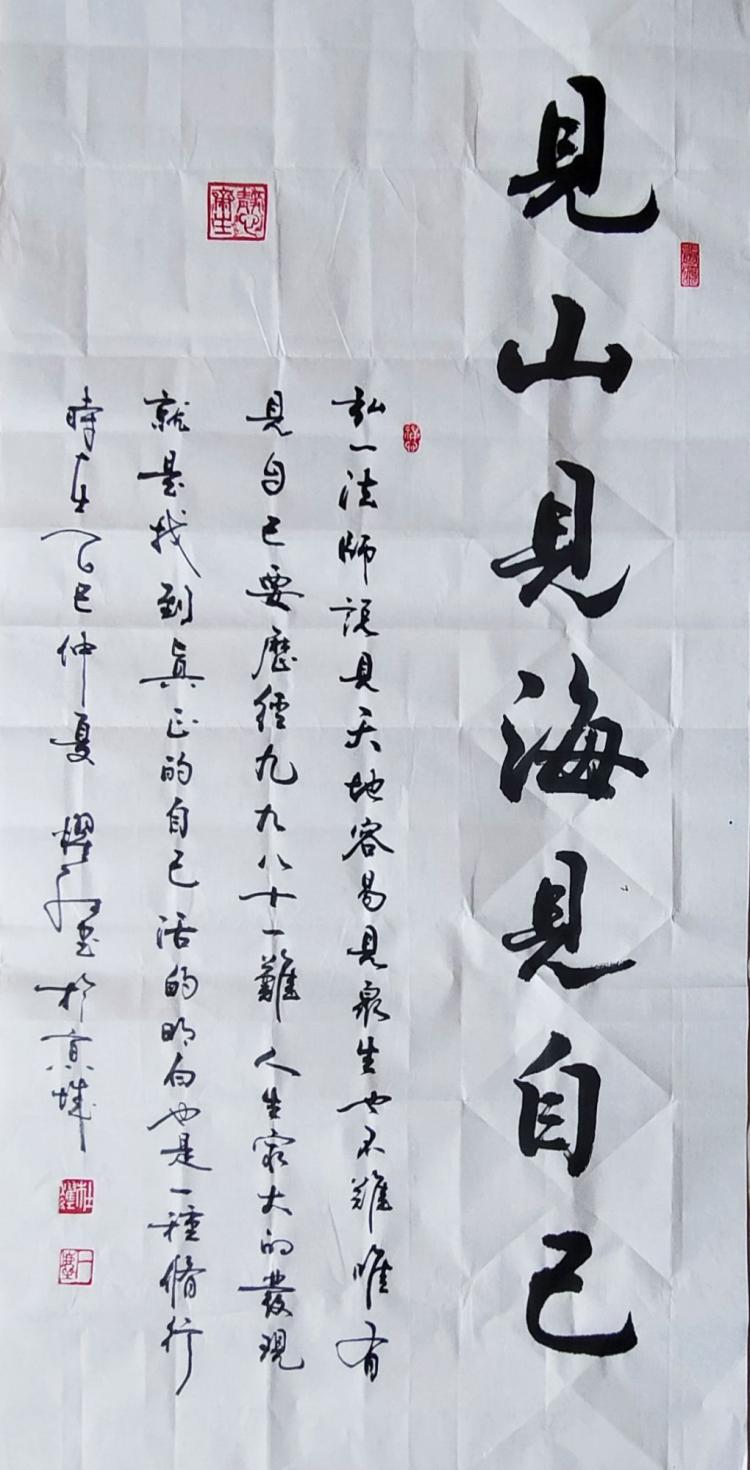 見山見海見自己
弘一法師説見天地容易見衆生也不難唯有
見自己要歷經九九八十一難人生最大的發現
就是找到真正的自己活的明白也是一種脩行
時在乙巳仲夏耀書於京城